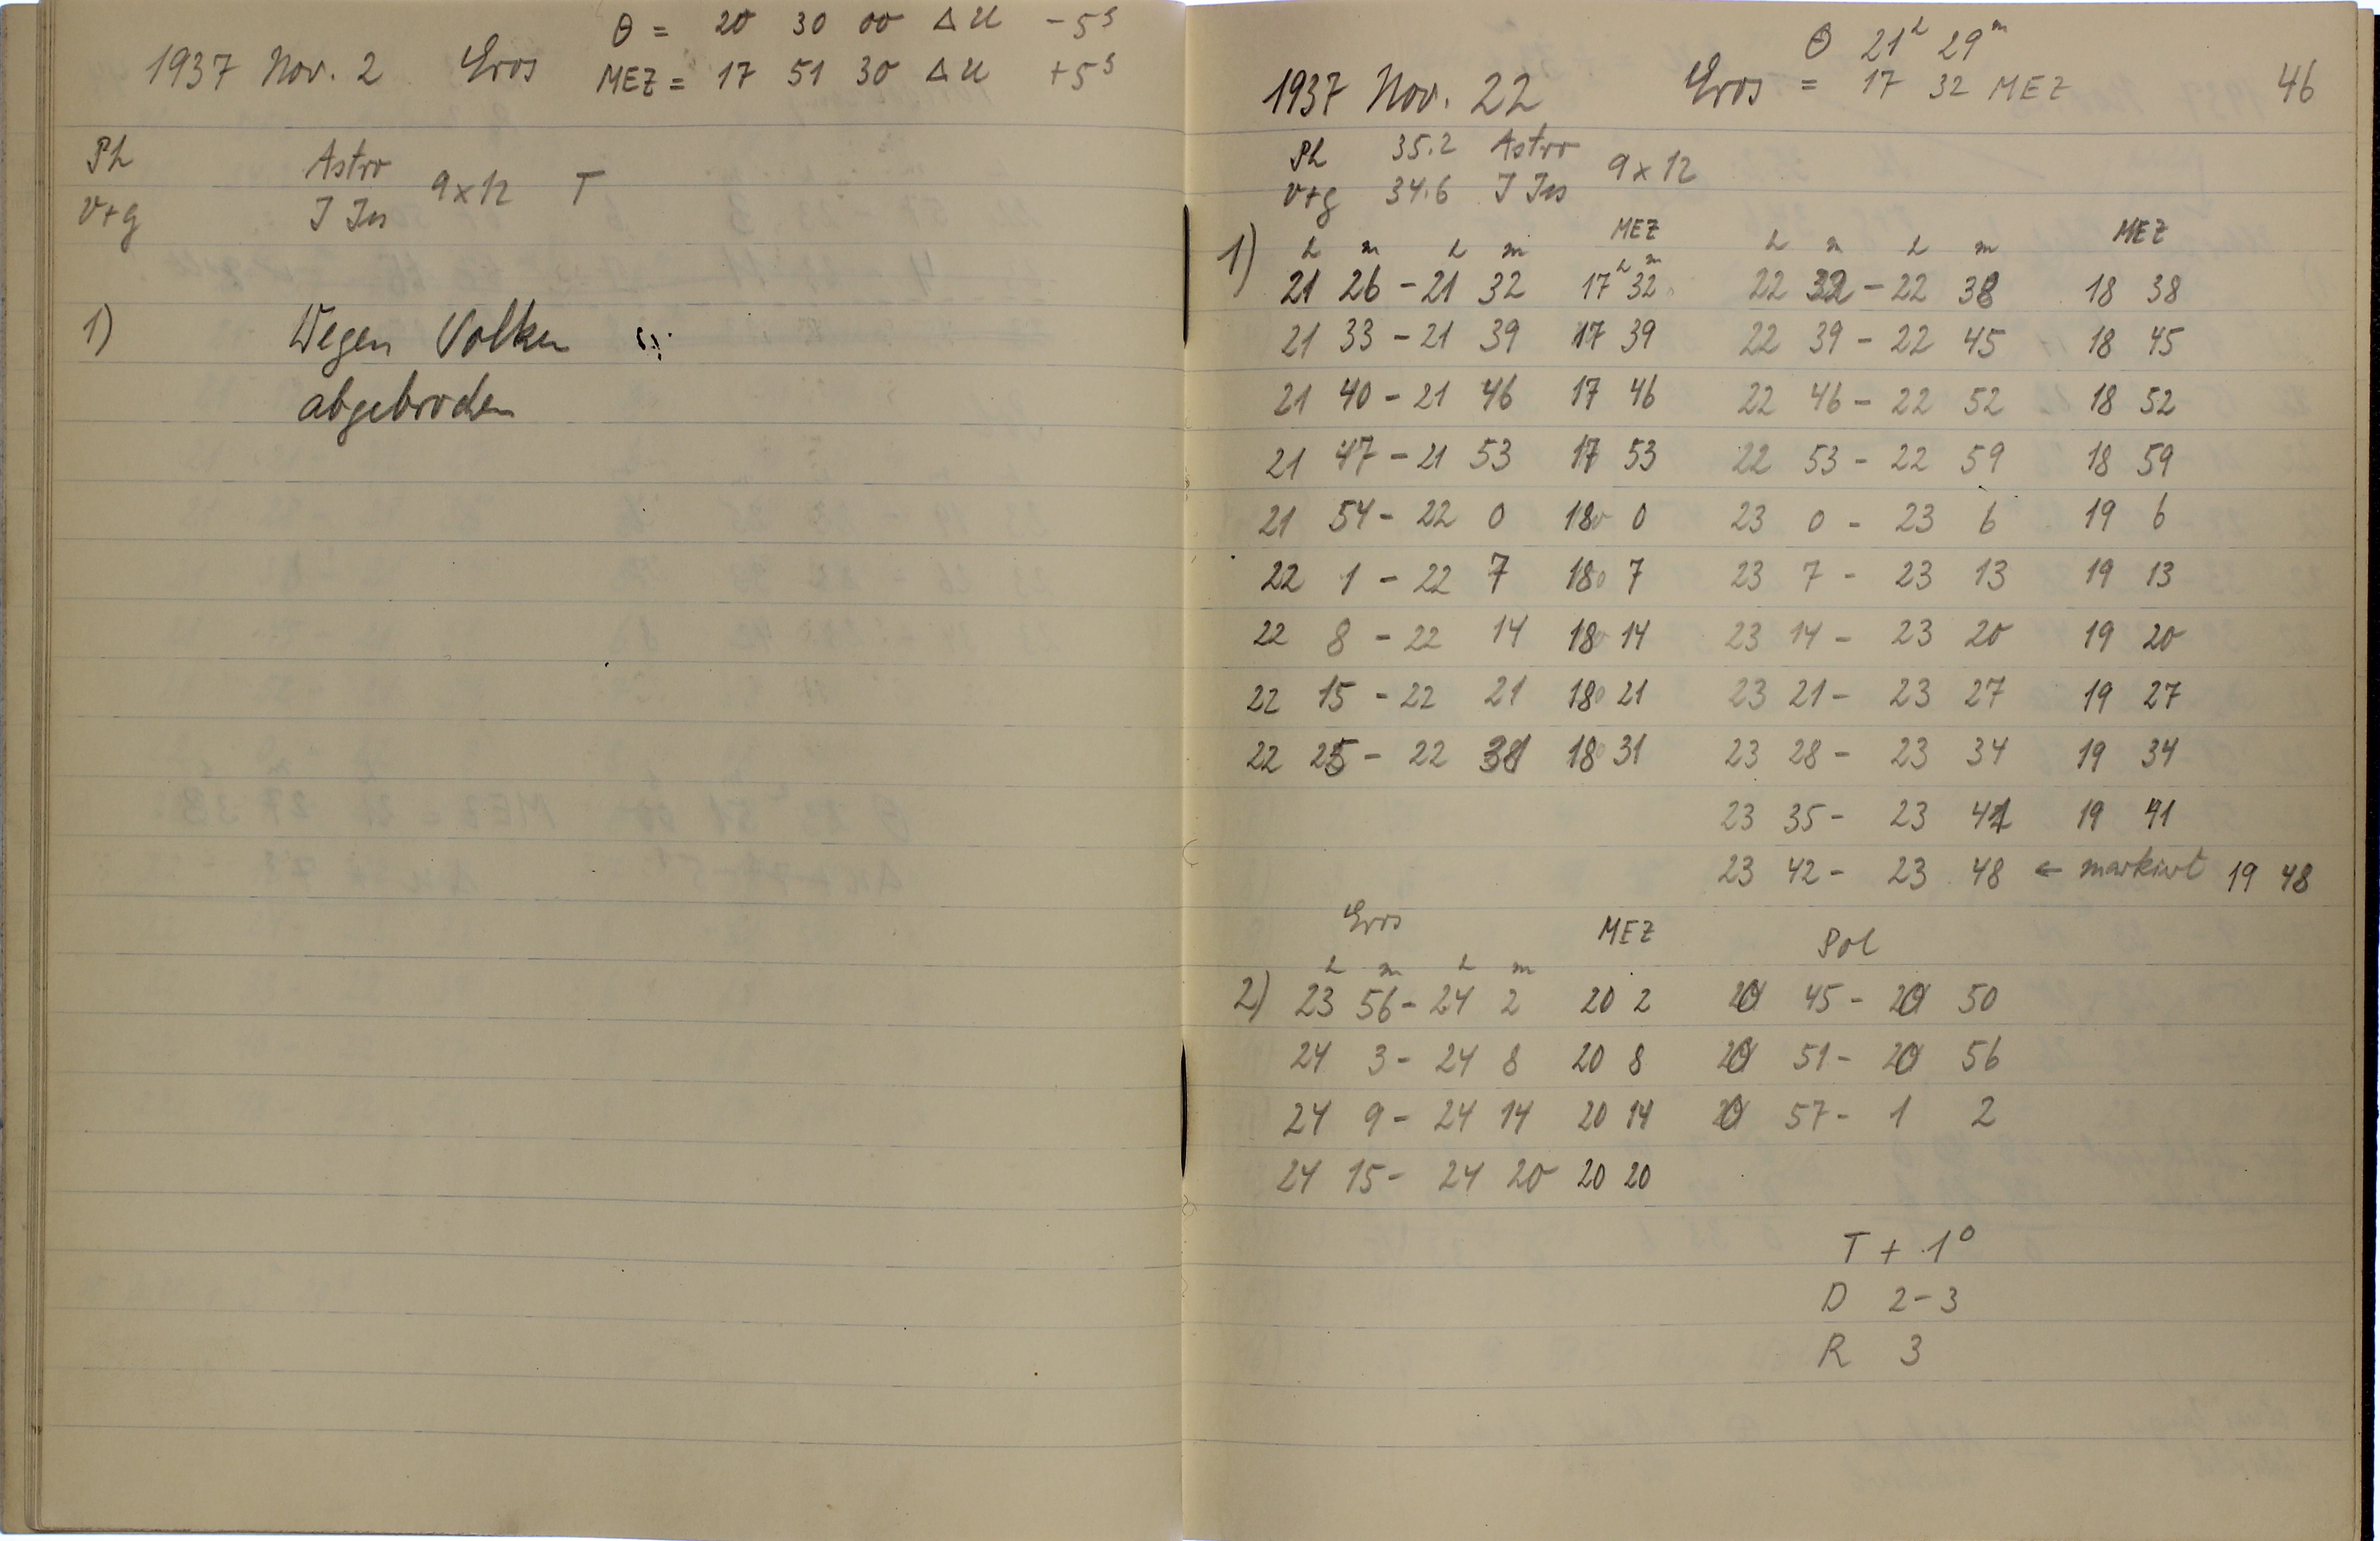 θ = 20 30 00 Δu -5ˢ
1937 Nov. 2 Eros MEZ = 17 51 30 Δu +5ˢ
Ph Astro
v+g J Jus 9x12 T
1) Wegen Wolken
abgebrochen
46
θ 21ʰ 29ᵐ
1937 Nov. 22 Eros = 17 32 MEZ
Ph 35.2 Astro
v+g 34.6 J Jus 9x12
h m h m MEZ h m h m MEZ
1) 21 26 - 21 32 17ʰ 32ᵐ 22 32 - 22 38 18 38
21 33 - 21 39 17 39 22 39 - 22 45 18 45
21 40 - 21 46 17 46 22 46 - 22 52 18 52
21 47 - 21 53 17 53 22 53 - 22 59 18 59
21 54 - 22 0 18 0 23 0 - 23 6 19 6
22 1 - 22 7 18 7 23 7 - 23 13 19 13
22 8 - 22 14 18 14 23 14 - 23 20 19 20
22 15 - 22 21 18 21 23 21 - 23 27 19 27
22 25 - 22 31 18 31 23 28 - 23 34 19 34
23 35 - 23 41 19 41
23 42 - 23 48 ← markiert 19 48
Eros MEZ Pol
h m h m
2) 23 56 - 24 2 20 2 0 45 - 0 50
24 3 - 24 8 20 8 0 51 - 0 56
24 9 - 24 14 20 14 0 57 - 1 2
24 15 - 24 20 20 20
T + 1°
D 2-3
R 3